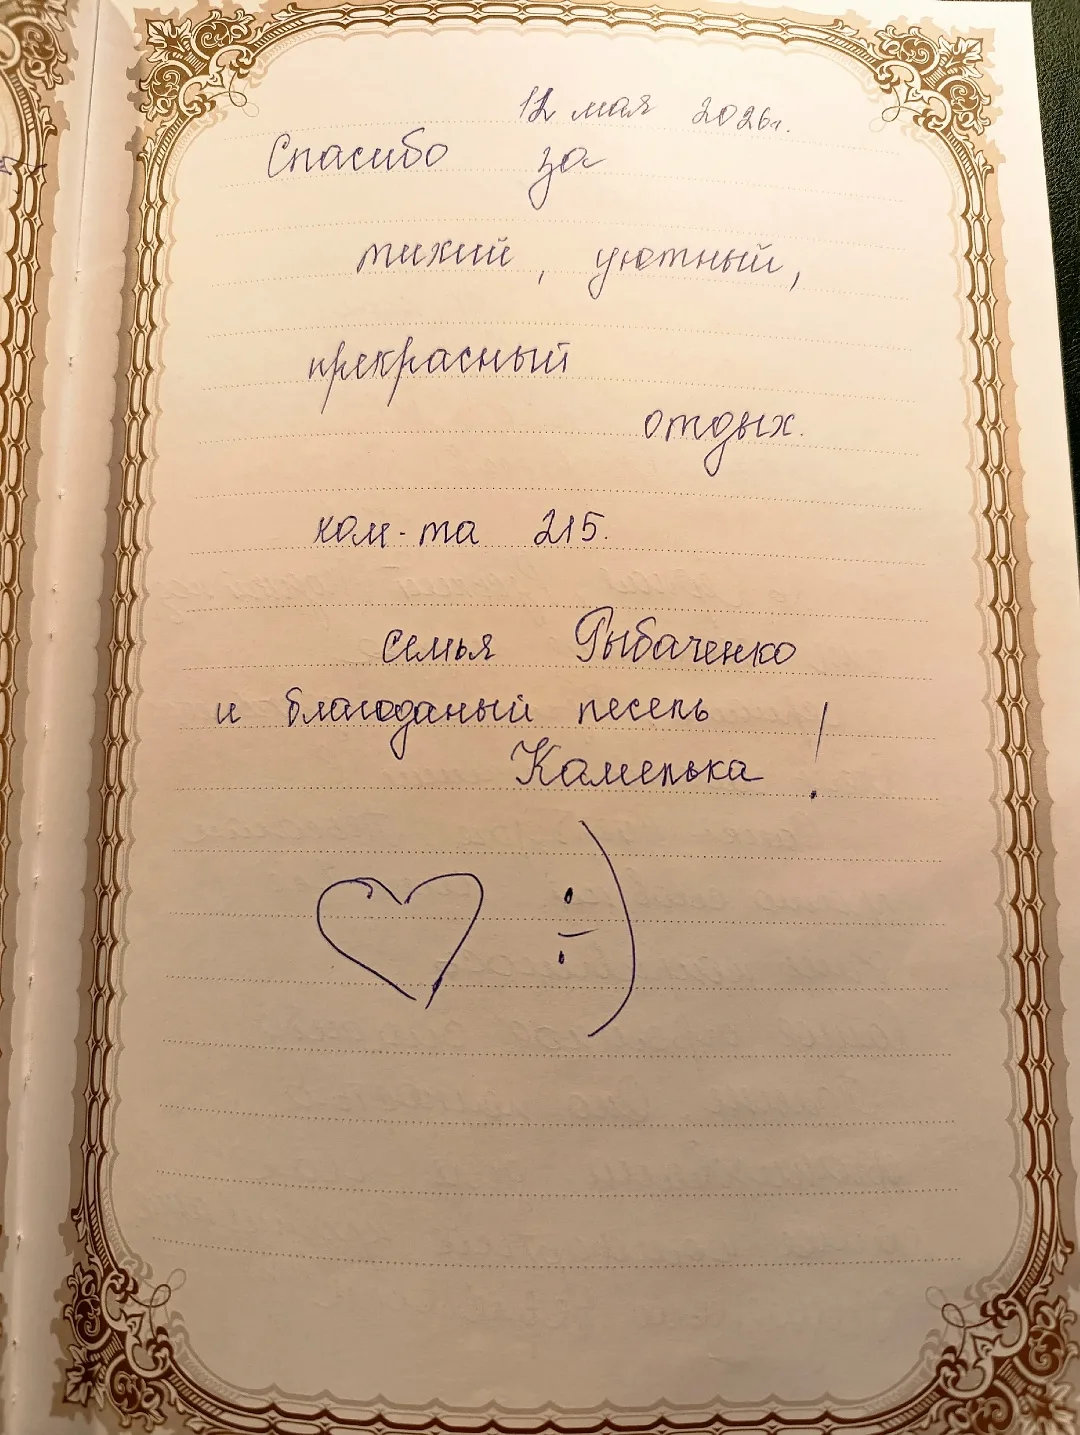 12 мая 2026г.
Спасибо за
тихий, уютный,
прекрасный
отдых.
ком-та 215.
семья Рыбаченко
и благоданый песель
Камелька!
:)